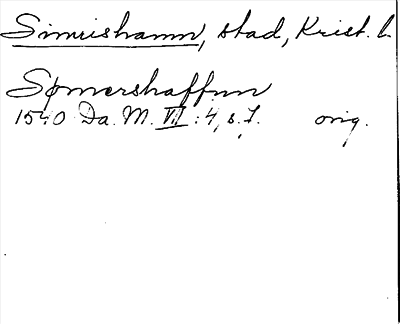 Simrishamn, stad, Krist. L
Sømershaffnn
1540 Da. M. VII : 4, s. 7. orig.